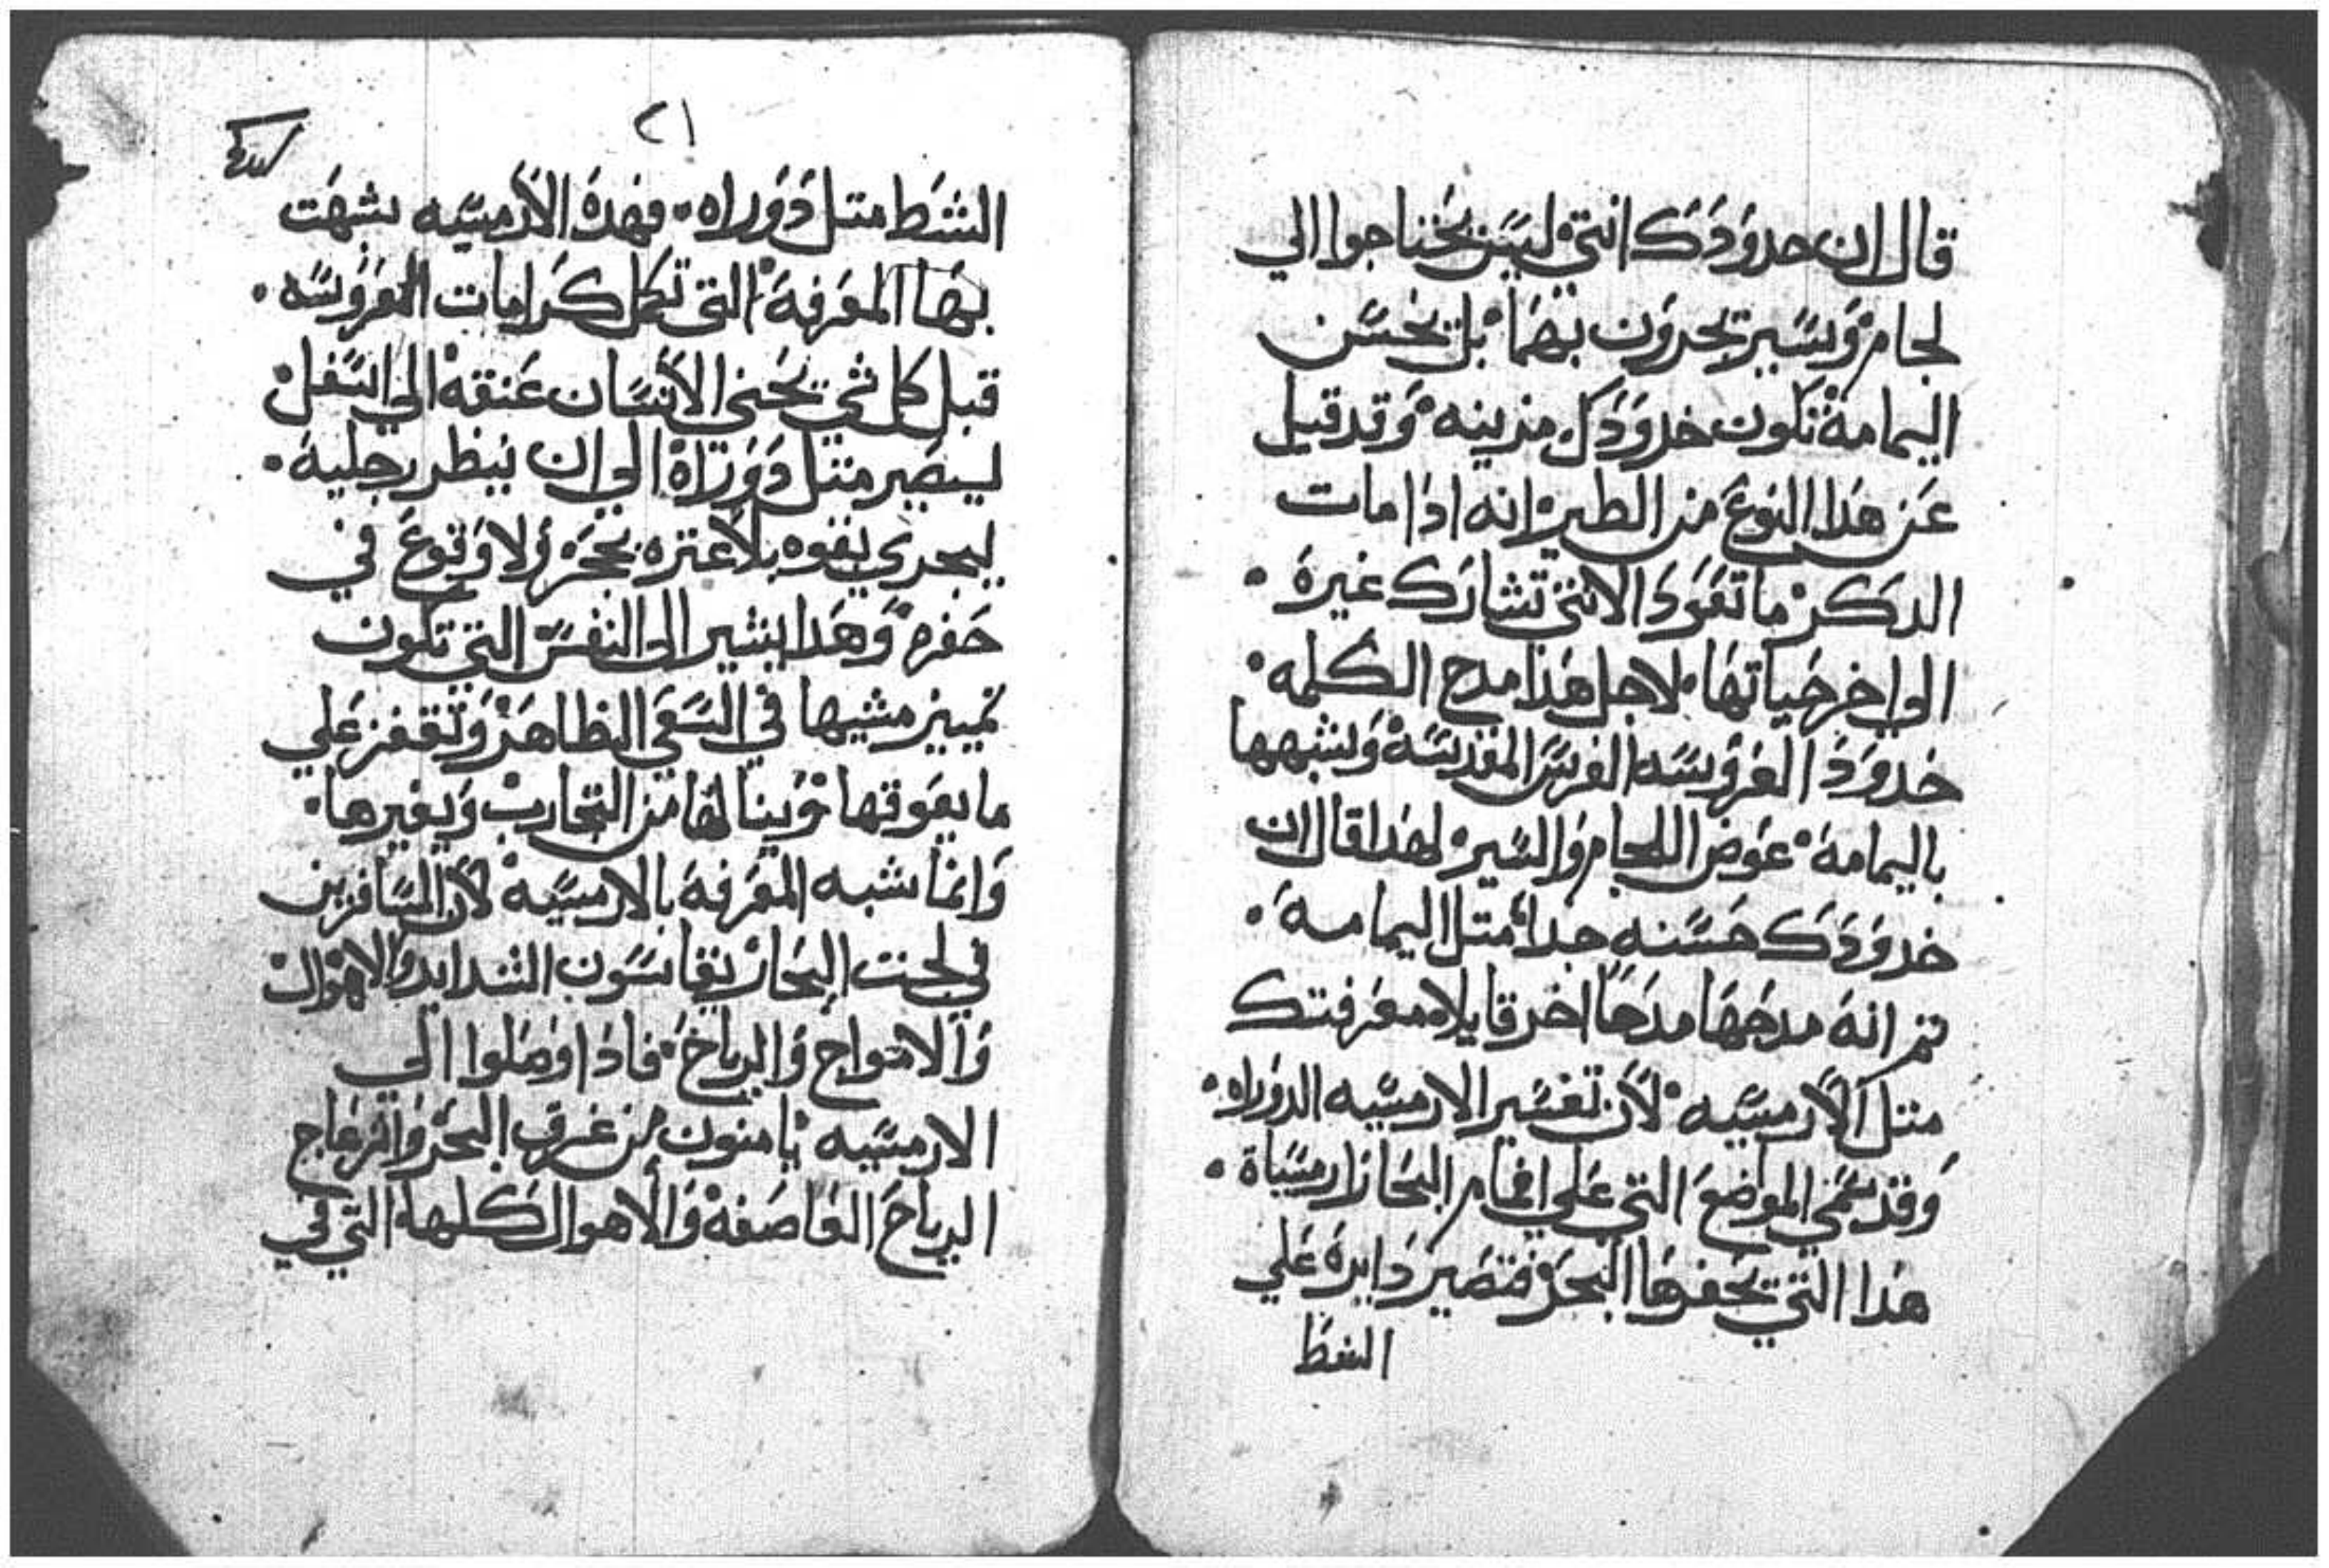 قال ان خدودك انتي ليس يحتاجوا الي
لجام وسير تجرون بهما بل بحسن
اليمامة تكون خدودك مزينه وقد قيل
عن هذا النوع من الطير انه اذا مات
الدكر ما تعود الانتي تشارك غيره
الي اخر حياتها لاجل هذا مدح الكلمه
خدود العروسه الفرس المقدسة ويشبهها
باليمامة عوض اللجام والسير لهذا قال ان
خدودك حسنه جدا متل اليمامة
تم انه مدحها مدحًا اخر قايلا معرفتك
متل الارمسيه لان تفسير الارمسيه الدوراه
وقد سمي المواضع التي علي افمام البحار ارمسياة
هذا التي يحفرها البحر فتصير دايرة علي
الشط
٢١
الشط متل دوراه فهده الارمسيه شبهت
بها المعرفة التي تكمل كرامات العروسه
قبل كل شي يحني الانسان عنقه الي اسفل
ليصير متل دوراة الي ان ينظر رجليه
ليجري بقوه بلا عتره بحجر ولا وقوع في
حفره وهدا يشير الي النفس التي تكون
تميز مشيها في السعي الظاهر وتقفز علي
ما يعوقها وينالها من التجارب ويغيرها
وانما شبه المعرفة بالارمسيه لان المسافرين
في لجت البحار يقاسون الشدايد والاهوال
والامواج والرياح فاذا وصلوا الي
الارمسيه يامنون من غرق البحر وانزعاج
الرياح العاصفة والاهوال كلها التي في